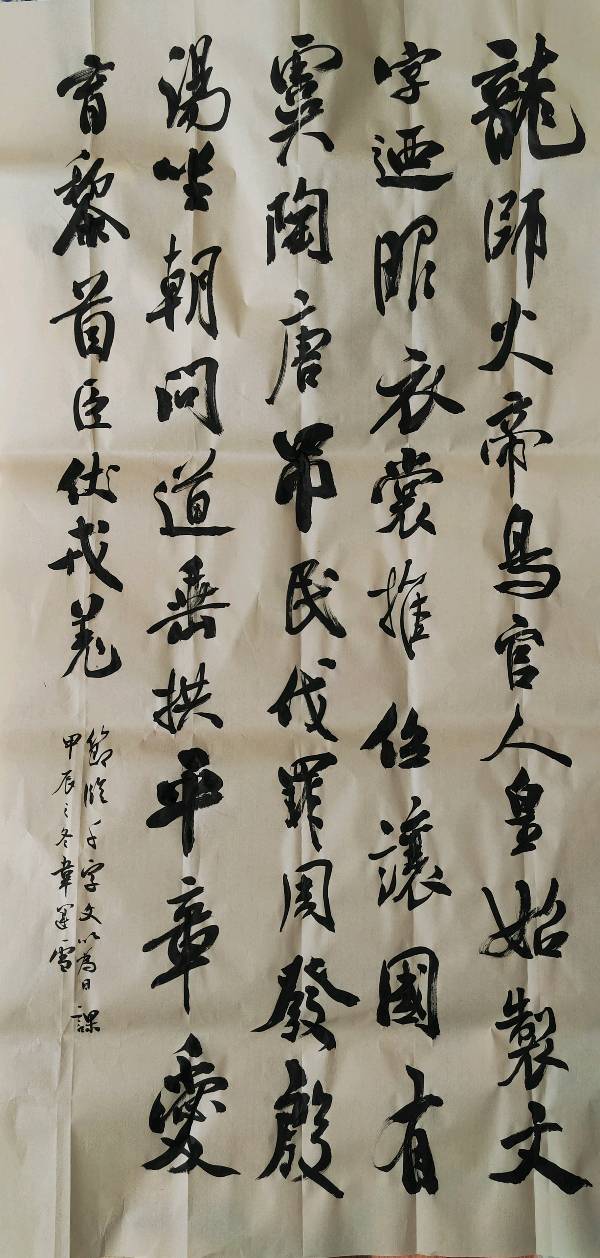 龍師火帝鳥官人皇始製文
字迺服衣裳推位讓國有
虞陶唐吊民伐罪周發殷
湯坐朝問道垂拱平章愛
育黎首臣伏戎羌
節臨千字文以為日課
甲辰之冬韋雪